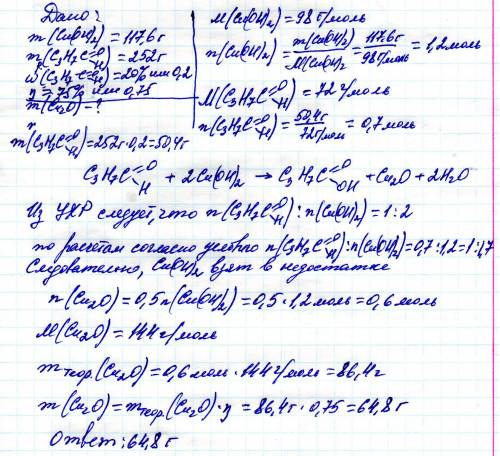 Дано:
m(Cu(OH)2) = 117,6г
m(C3H7C=O H) = 252г
ω(C3H7C=O H) = 20% или 0,2
η = 75% или 0,75
m(Cu2O) - ?
m(C3H7C=O H) = 252г · 0,2 = 50,4г
M(Cu(OH)2) = 98 г/моль
n(Cu(OH)2) = m(Cu(OH)2)/M(Cu(OH)2) = 117,6г/98г/моль = 1,2 моль
M(C3H7C=O H) = 72 г/моль
n(C3H7C=O H) = 50,4г/72г/моль = 0,7 моль
C3H7C=O H + 2Cu(OH)2 → C3H7C=O OH + Cu2O + 2H2O
Из УХР следует, что n(C3H7C=O H) : n(Cu(OH)2) = 1 : 2
по расчетам согласно условию n(C3H7C=O H) : n(Cu(OH)2) = 0,7 : 1,2 = 1 : 1,7
Следовательно, Cu(OH)2 взят в недостатке
n(Cu2O) = 0,5n(Cu(OH)2) = 0,5 · 1,2 моль = 0,6 моль
M(Cu2O) = 144 г/моль
mтеор.(Cu2O) = 0,6 моль · 144 г/моль = 86,4г
m(Cu2O) = mтеор.(Cu2O) · η = 86,4г · 0,75 = 64,8 г
Ответ: 64,8 г